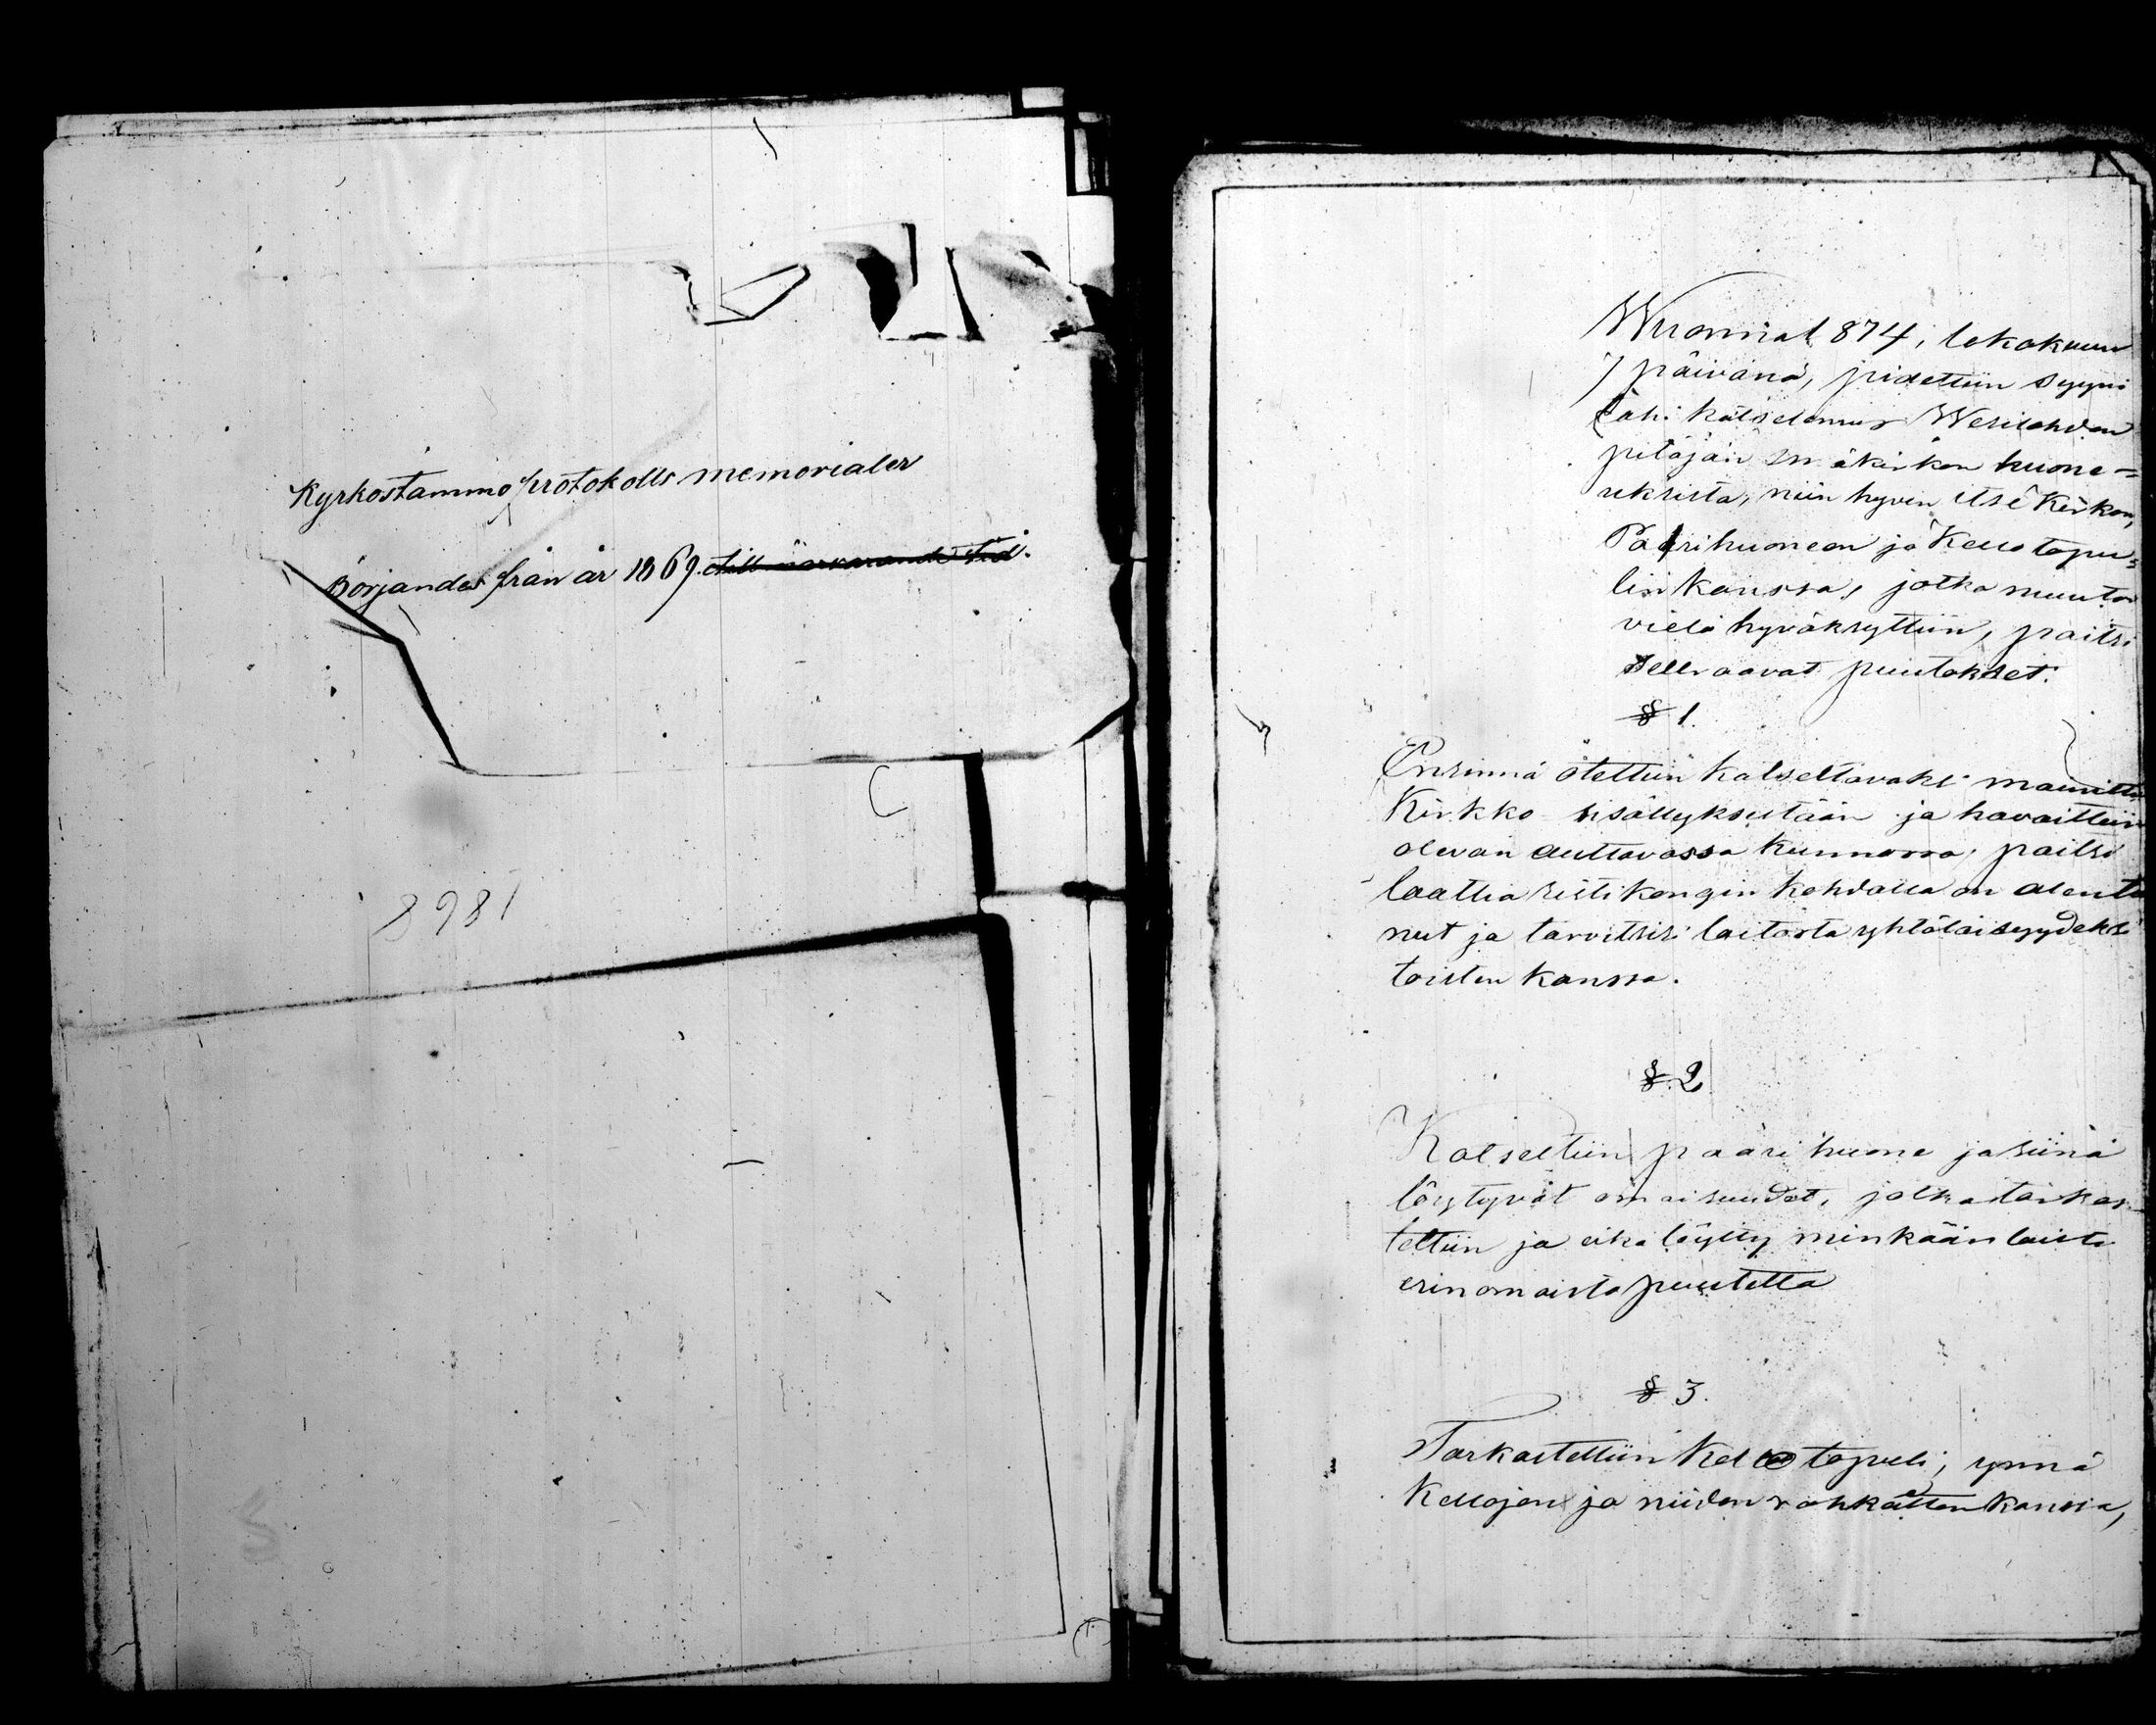 Kyrkostämmo protokolls memorialer
Börjandes från år 1869. till närvarande tid.
8981
Wuonna 1874, lokakuun
7 päivänä, pidettiin syyni
eah: katselemus Wesilahden
pitäjän emäkirkon huone=
uksista, niin hyvin itse Kirkon,
Paarihuoneen ja Kellotapu=
lin kanssa, jotka muuton
vielä hyväksyttiin, paitsi
seuraavat puutokset:
§ 1.
Ensinnä otettiin katseltavaksi mainittu
Kirkko sisällyksestään ja havaittiin
olevan auttavassa kunnossa, paitsi
laattia ristikongin kohdalla on alentu
nut ja tarvitsisi laitosta yhtäläisyydeksi
toisten kanssa.
§. 2
Katseltiin paari huone ja siinä
löytyvät omaisuudet, jotka tarkas
teltiin ja eikä löytty minkäänlaista
erinomaista puutetta
§ 3.
Tarkasteltiin Kellotapuli, ynnä
Kellojen ja niiden rahkatten kanssa,